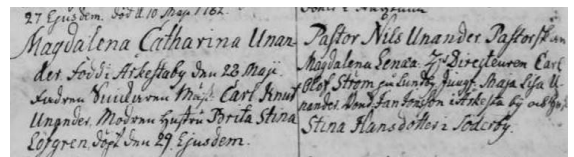 27 Ejusdem. död d 10 Maji 1782.
Magdalena Catharina Unan-
der född i Arkestaby den 28 Maji
Fadren Carl Knut
Unander. Modren Hustru Brita Stina
Löfgren döpt den 29 Ejusdem.
Pastor Nils Unander Pastorskan
Magdalena Directeuren Carl
Olof Ström på Lundby Jungf. Maja Lisa U-
nander i Arkesta by och
Stina Hansdotter i Söderby.